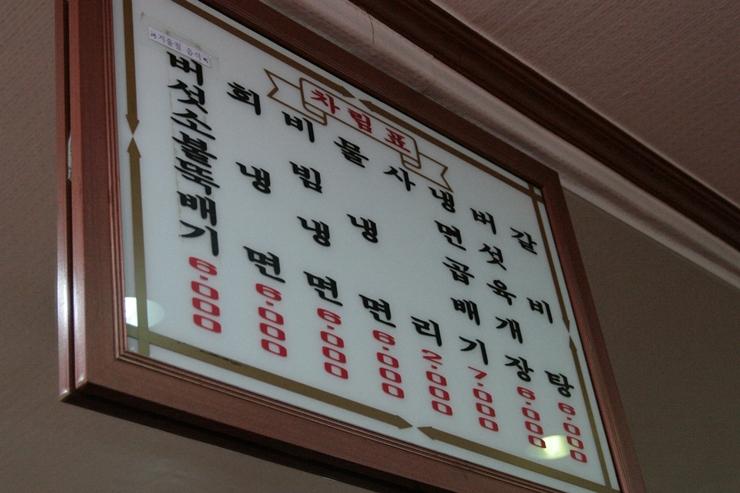 차림표
갈비탕 6.000
버섯육개장 6.000
냉면곱배기 7.000
사리 2.000
물냉면 6.000
비빔냉면 6.000
회냉면 6.000
겨울철 음식
버섯소불뚝배기 6.000